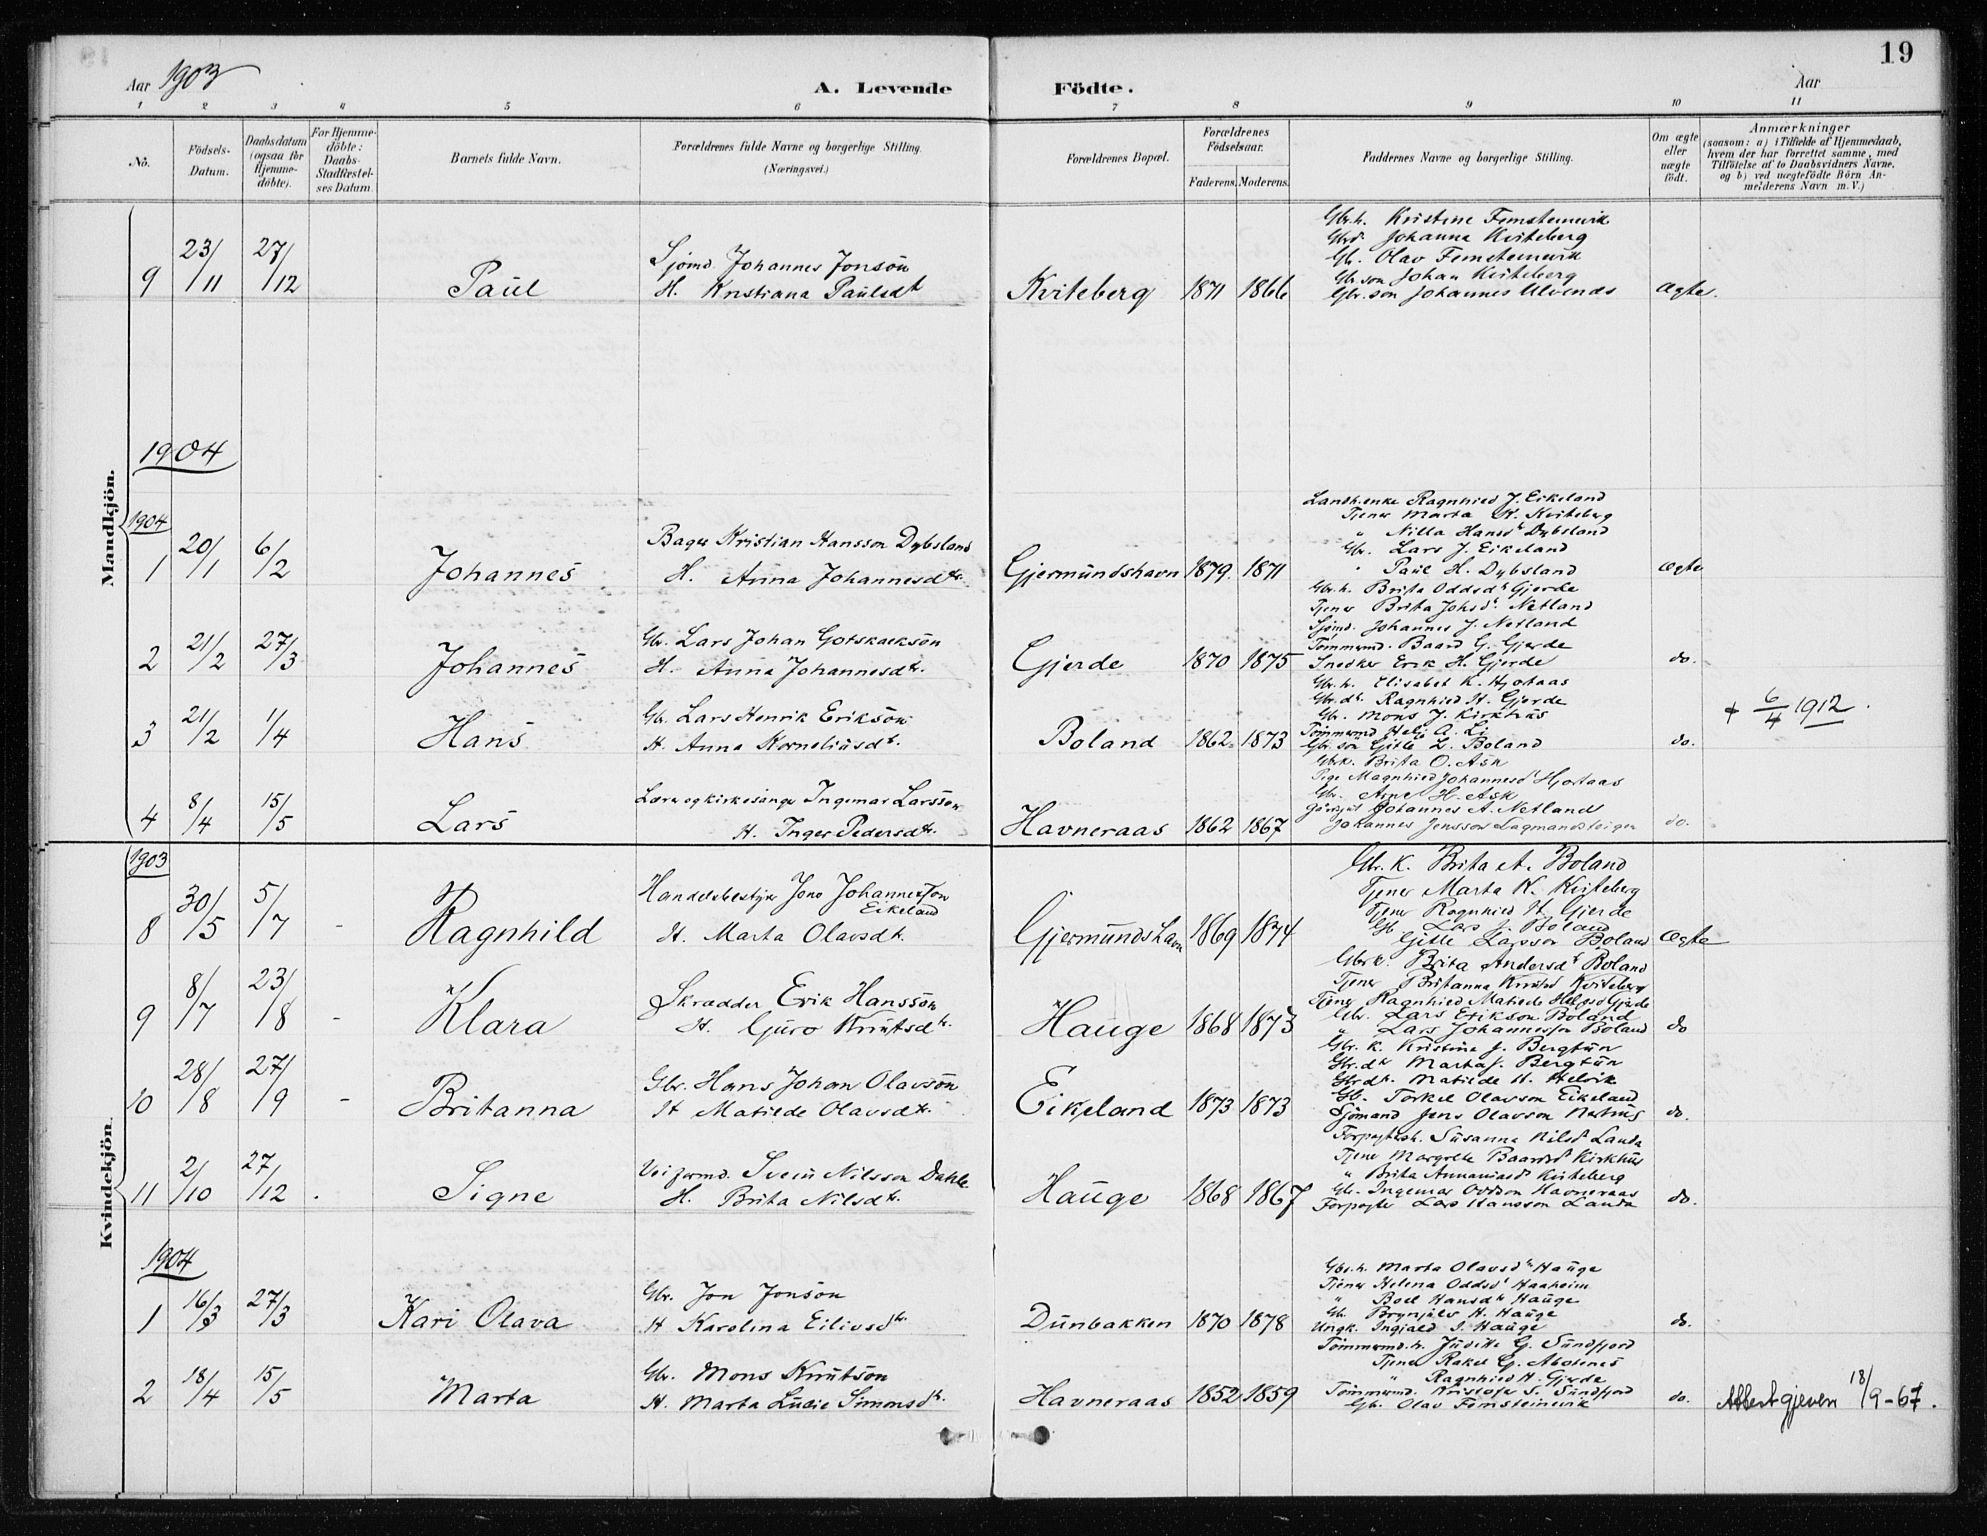 19
Aar 1903
A. Levende Födte.
Aar
1 2 3 4 5 6 7 8 9 10 11
No.
Födsels-Datum.
Daabsdatum (ogsaa for Hjemme-döbte).
For Hjemme-döbte: Daabs-Stadfæstel-ses Datum.
Barnets fulde Navn.
Forældrenes fulde Navne og borgerlige Stilling. (Næringsvei.)
Forældrenes Bopæl.
Forældrenes Födselsaar.
Faderens. Moderens.
Faddernes Navne og borgerlige Stilling.
Om ægte eller uægte födt.
Anmærkninger
(saasom: a) i Tilfælde af Hjemmedaab,
hvem der har forrettet samme, med
Tilföielse af to Daabsvidners Navne,
og b) ved uægtefödte Börn An-
melderens Navn m. V.)
Mandkjön.
9 23/11 27/12 Paul
Sjömd. Johannes Jonson
H. Kristiana Paulsdt
Kviteberg 1871 1866
Gbr.h. Kristine Femsteinevik
Gbrd. Johanna Kviteberg
Gb. Olav Femsteinevik
Gbr.son Johan Kviteberg
Gbr.son Johannes Ulvenes
Ægte.
1904
1904
1 20/1 6/2 Johannes
Bager Kristian Hansson Dybsland
H. Anna Johannesdtr.
Gjermundshavn 1879. 1871
Landh.enke Ragnhild J. Eikeland
Tjener Marta K. Kviteberg
" Nilla Hansdt Dybsland
Gbr. Lars J. Eikeland
" Paul H. Dybsland
ægte
2 21/2 27/3 Johannes
Gbr. Lars Johan Gotskalkson
H. Anna Johannesdtr.
Gjerde 1870 1875
Gbr.h. Brita Oddsdt Gjerde
Tjener Brita Johsdt. Netland
Sjömd. Johannes J. Netland
Tömmermd. Baard G. Gjerde
Snedker Erik H. Gjerde
do.
3 21/2 1/4 Hans
Gb. Lars Henrik Erikson
H. Anna Korneliusdt.
Boland 1862. 1873
Gbr.h. Elisabet K. Hjortaas
Gbr.dt. Ragnhild H. Gjerde
Gb. Mons J. Kirkhus
Tömmermd Helje A. Li
Gbr.son Gitle L. Boland
do.
+ 6/4 1912.
4 8/4 15/5 Lars
Lærer og kirkesanger Ingemar Larsson
H. Inger Pedersdtr.
Havneraas 1862 1867
Gbrk. Brita O. Ask
Pige Magnhild Johannesdt Hjortaas
Gbr. Arne H. Ask
Johannes A. Netland
Johannes Jensson Lagmandsteigen
do.
Kvindekjön.
1903
8 30/5 5/7 - Ragnhild
Handelsbestyrer Jons Johannesson
Eikeland
H. Marta Olavsdt.
Gjermundshavn 1869 1874
Gbr. K. Brita A. Boland
Tjener Marta K. Kviteberg
Tjener Ragnhild H. Gjerde
Gb. Lars J. Boland
Gitle Larsson Boland
Ægte
9 8/7 23/8 - Klara
Skrædder Erik Hansson
H. Guro Knutsdtr.
Hauge 1868 1873
Gbrk. Brita Andersdt Boland
Tjener Britanna Knutsd Kviteberg
Tjener Ragnhild Matilde Helgesd Gjerde
Gbr. Lars Erikson Boland
" Lars Johannesson Boland
do
10 28/8 27/9 - Britanna
Gbr. Hans Johan Olavson
H Matilde Olavsdtr.
Eikeland 1873 1873
Gbr. K. Kristina J. Bergtun
Gbr.dt. Marta J. Bergtun
Gbrdt. Matilde H. Helvik
Gb. Torkel Olavson Eikeland
Sjömand Jens Olavson Nerhus
do.
11 2/10 27/12 . Signe
Veiformd. Svein Nilsson Dahle
H. Brita Nilsdtr.
Hauge 1868 1867
Forpagtersk. Susanna Nilsdt Landa
Tjener Margrete Baardsdt Kirkhus
" Brita Ananiasdt Kviteberg
Gb. Ingemar Oddson Havneraas
Forpagter Lars Hansson Landa
do.
1904
1 16/3 27/3 Kari Olava
Gbr. Jon Jonson
H Karolina Eilivsdtr.
Dunbakken 1870 1878
Gbr.h. Marta Olavsdtr Hauge
Tjener Helena Oddsdt Haaheim
" Boel Hansdtr Hauge
Gb. Brynjulv H. Hauge
Ungk. Ingjald S. Hauge
do.
2 18/4 15/5 Marta
Gbr. Mons Knutson
H. Marta Lucie Simonsdt.
Havneraas 1852 1859
Tömmermd.h. Judithe G. Sundfjord
Tjener Rakel G. Akslenes
" Ragnhild H. Gjerde
Tömmermd. Kristofer S. Sundfjord
Gb. Olav Femsteinevik
do.
Attest gjeven 18/9-67.